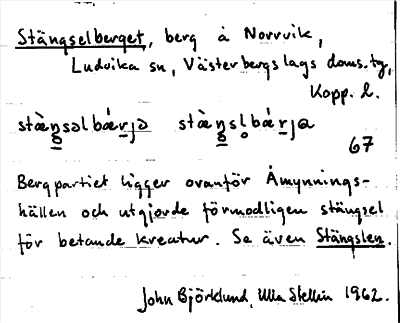 Stängselberget, berg å Norrvik,
Ludvika sn, Västerbergslags doms.tg,
Kopp. l.
stæ̀ŋsəlbǽrjə stæ̀ŋsl̥bǽrja
67
Bergpartiet ligger ovanför Åmynnings-
hällen och utgjorde förmodligen stängsel
för betande kreatur. Se även Stängslen.
John Björklund, Ulla Stellin 1962.